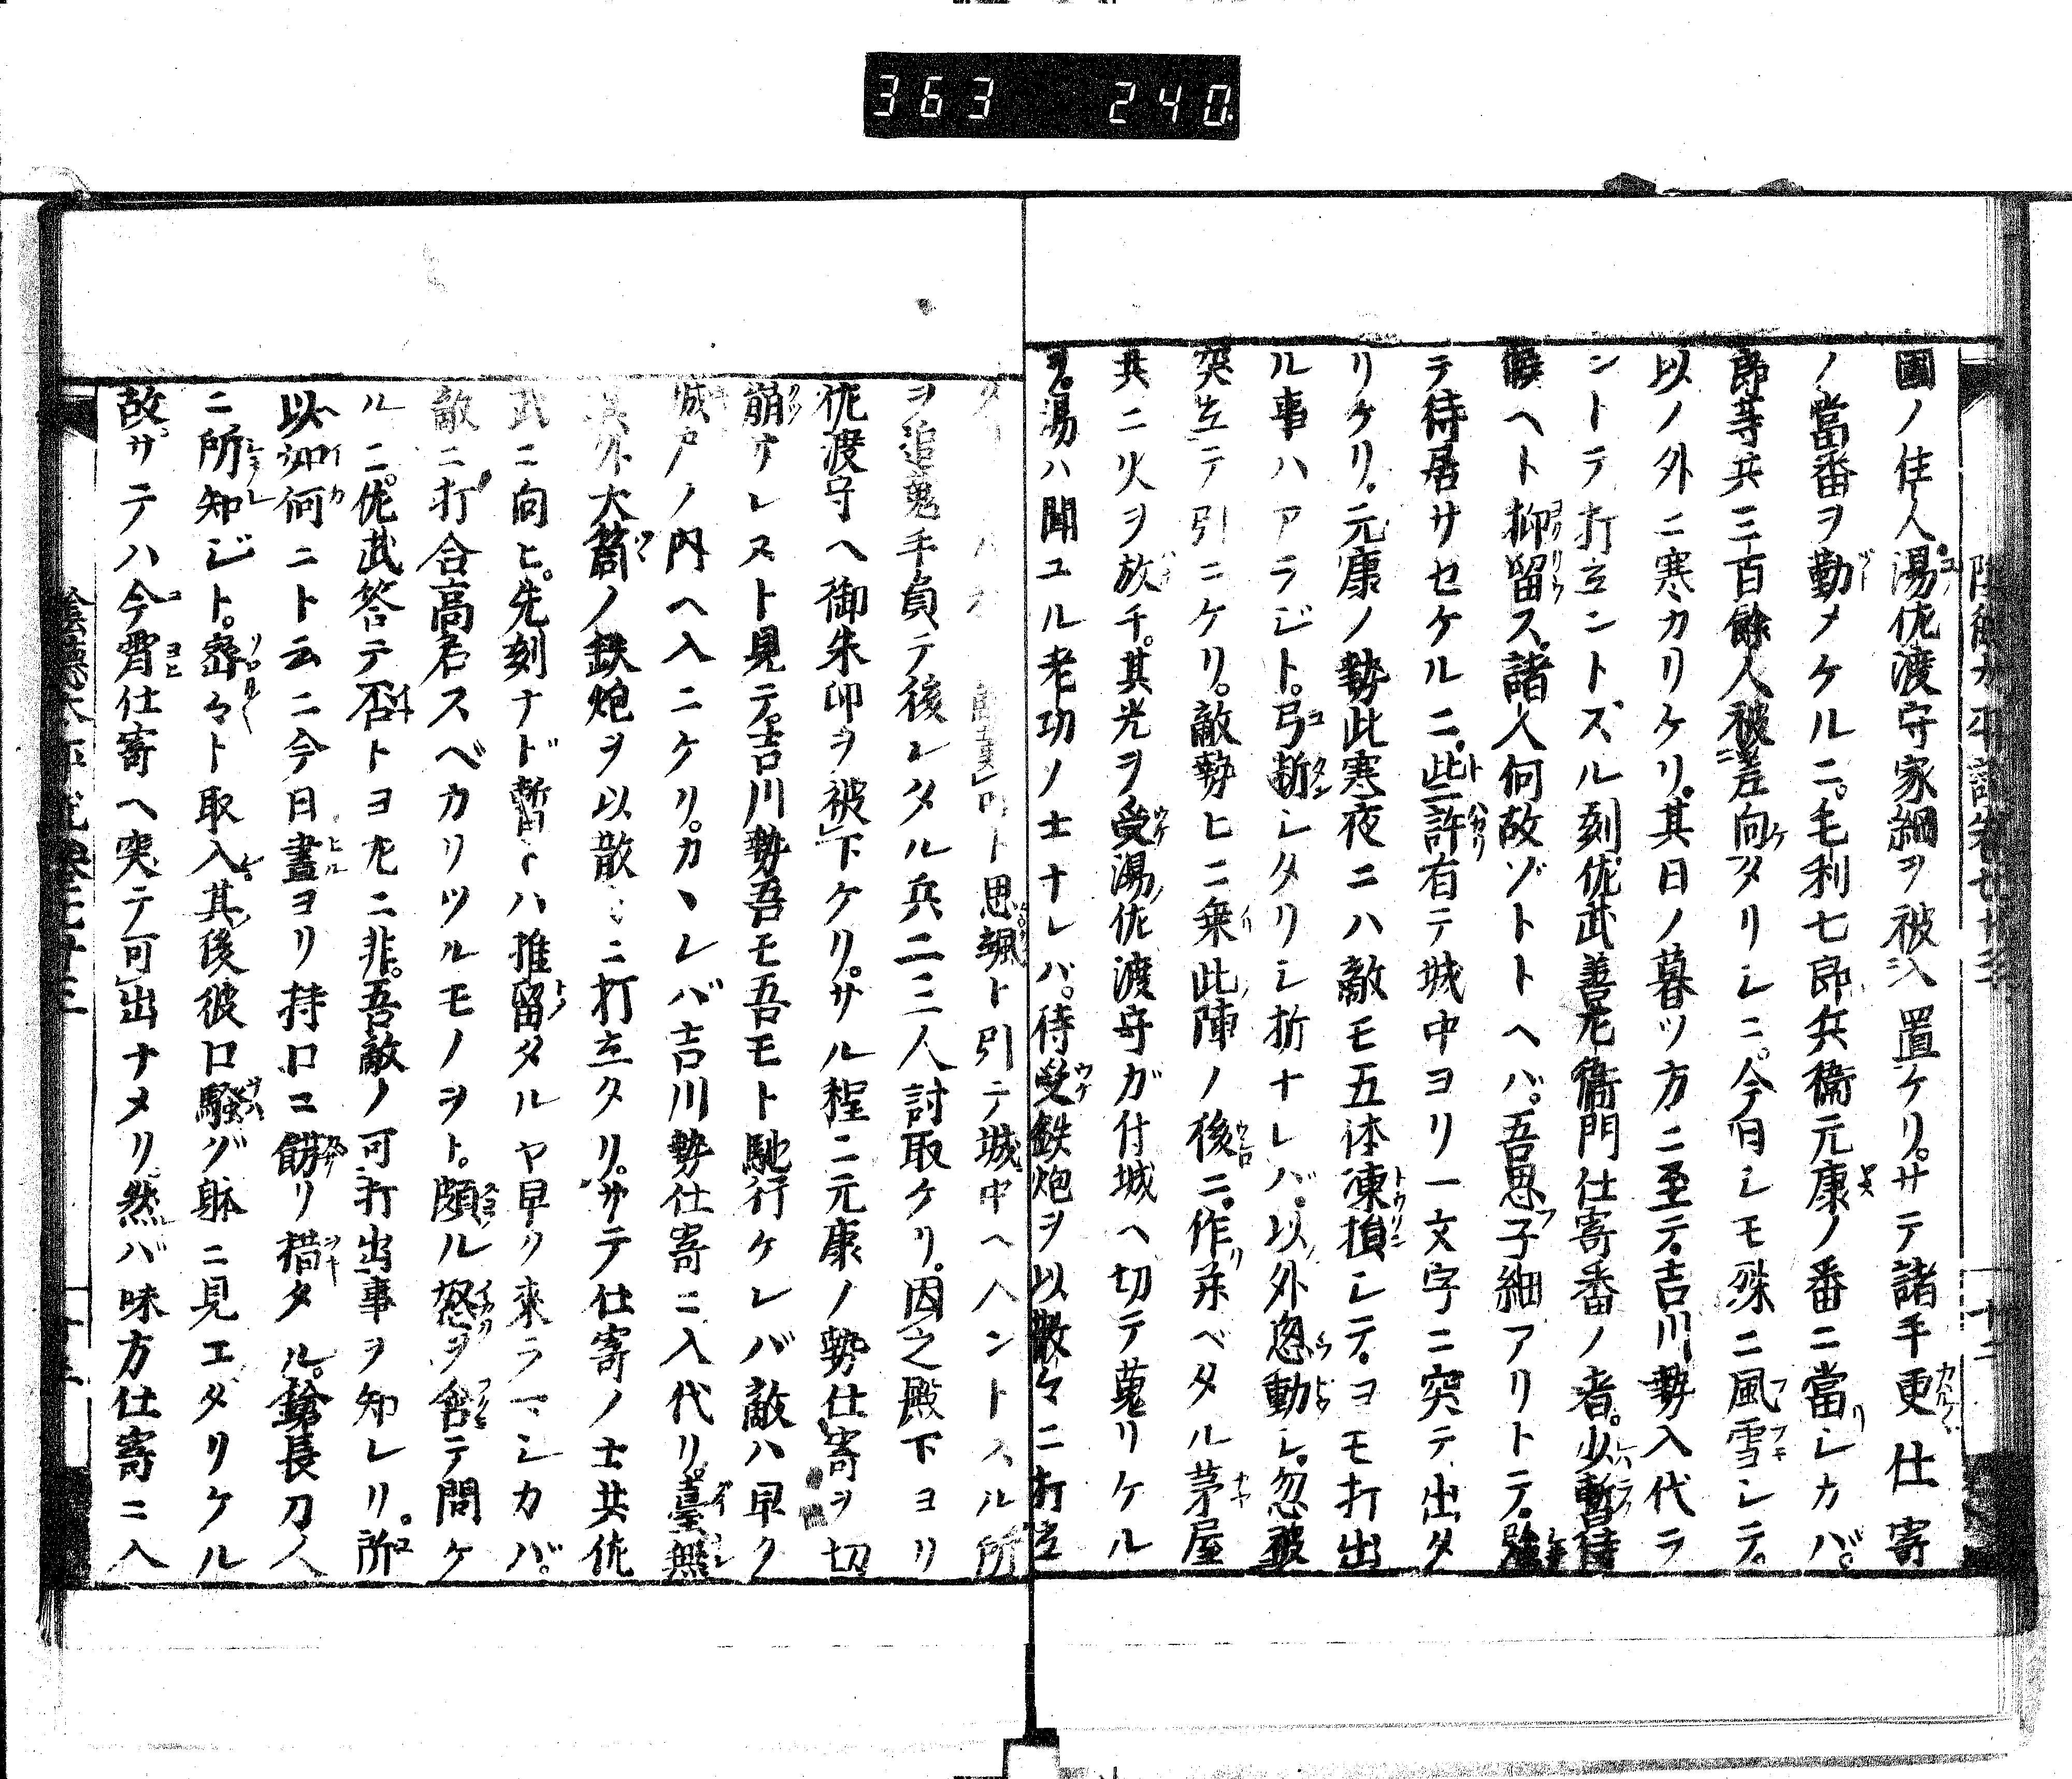 363 240
國ノ住人湯佐渡守家綱ヲ被入置ケリ。サテ諸手更仕寄
ノ當番ヲ勤メケルニ。毛利七郎兵衞元康ノ番ニ當リシカバ。
郎等兵三百餘人被差向ケタリシニ。今日シモ殊ニ風雪シテ。
以ノ外ニ寒カリケリ。其日ノ暮ツ方ニ至テ。吉川勢入代ラ
ントテ打立ントズル刻佐武善左衞門仕寄番ノ者。少暫待
候ヘト抑留ス。諸人何故ゾトトヘバ。吾思フ子細アリトテ。
テ待居サセケルニ。些許有テ城中ヨリ一文字ニ突テ出タ
リケリ。元康ノ勢此寒夜ニハ敵モ五体凍損シテ。ヨモ打出
ル事ハアラジト。弓断シタリシ折ナレバ。以外恩動シ。忽破
突立テ引ニケリ。敵勢ヒニ乗此陣ノ後ニ。作リ并ベタル茅屋
共ニ火ヲ放チ。其光ヲ受湯佐渡守ガ付城ヘ切テ蒐リケル
ヲ。湯ハ聞ユル老功ノ士ナレバ。待受鉄炮ヲ以散々ニ打立
ト思颯ト引テ城中ヘ入ントスル所
ヲ追蒐手負テ後レタル兵二三人討取ケリ。因之殿下ヨリ
佐渡守ヘ御朱印ヲ被下ケリ。サル程ニ元康ノ勢仕寄ヲ切
崩サレヌト見テ。吉川勢吾モ吾モト馳行ケレバ敵ハ早ク
城戸ノ内ヘ入ニケリ。カヽレバ吉川勢仕寄ニ入代リ。臺無
其外大筒ノ鉄炮ヲ以散々ニ打立タリ。サテ仕寄ノ士共佐
武ニ向ヒ。先刻ナド暫トハ推留タルヤ早ク来ラマシカバ。
敵ニ打合高名スベカリツルモノヲト。頗ル怒ヲ含テ問ケ
ルニ。佐武答テ否トヨ左ニ非。吾敵ノ可打出事ヲ知レリ。所
以如何ニト云ニ今日晝ヨリ持口ニ餝リ措タル。鎗長刀人
ニ所知ジト。密々ト取入。其後彼口騒グ躰ニ見エタリケル
故。サテハ今宵仕寄ヘ突テ可出ナメリ然バ味方仕寄ニ入